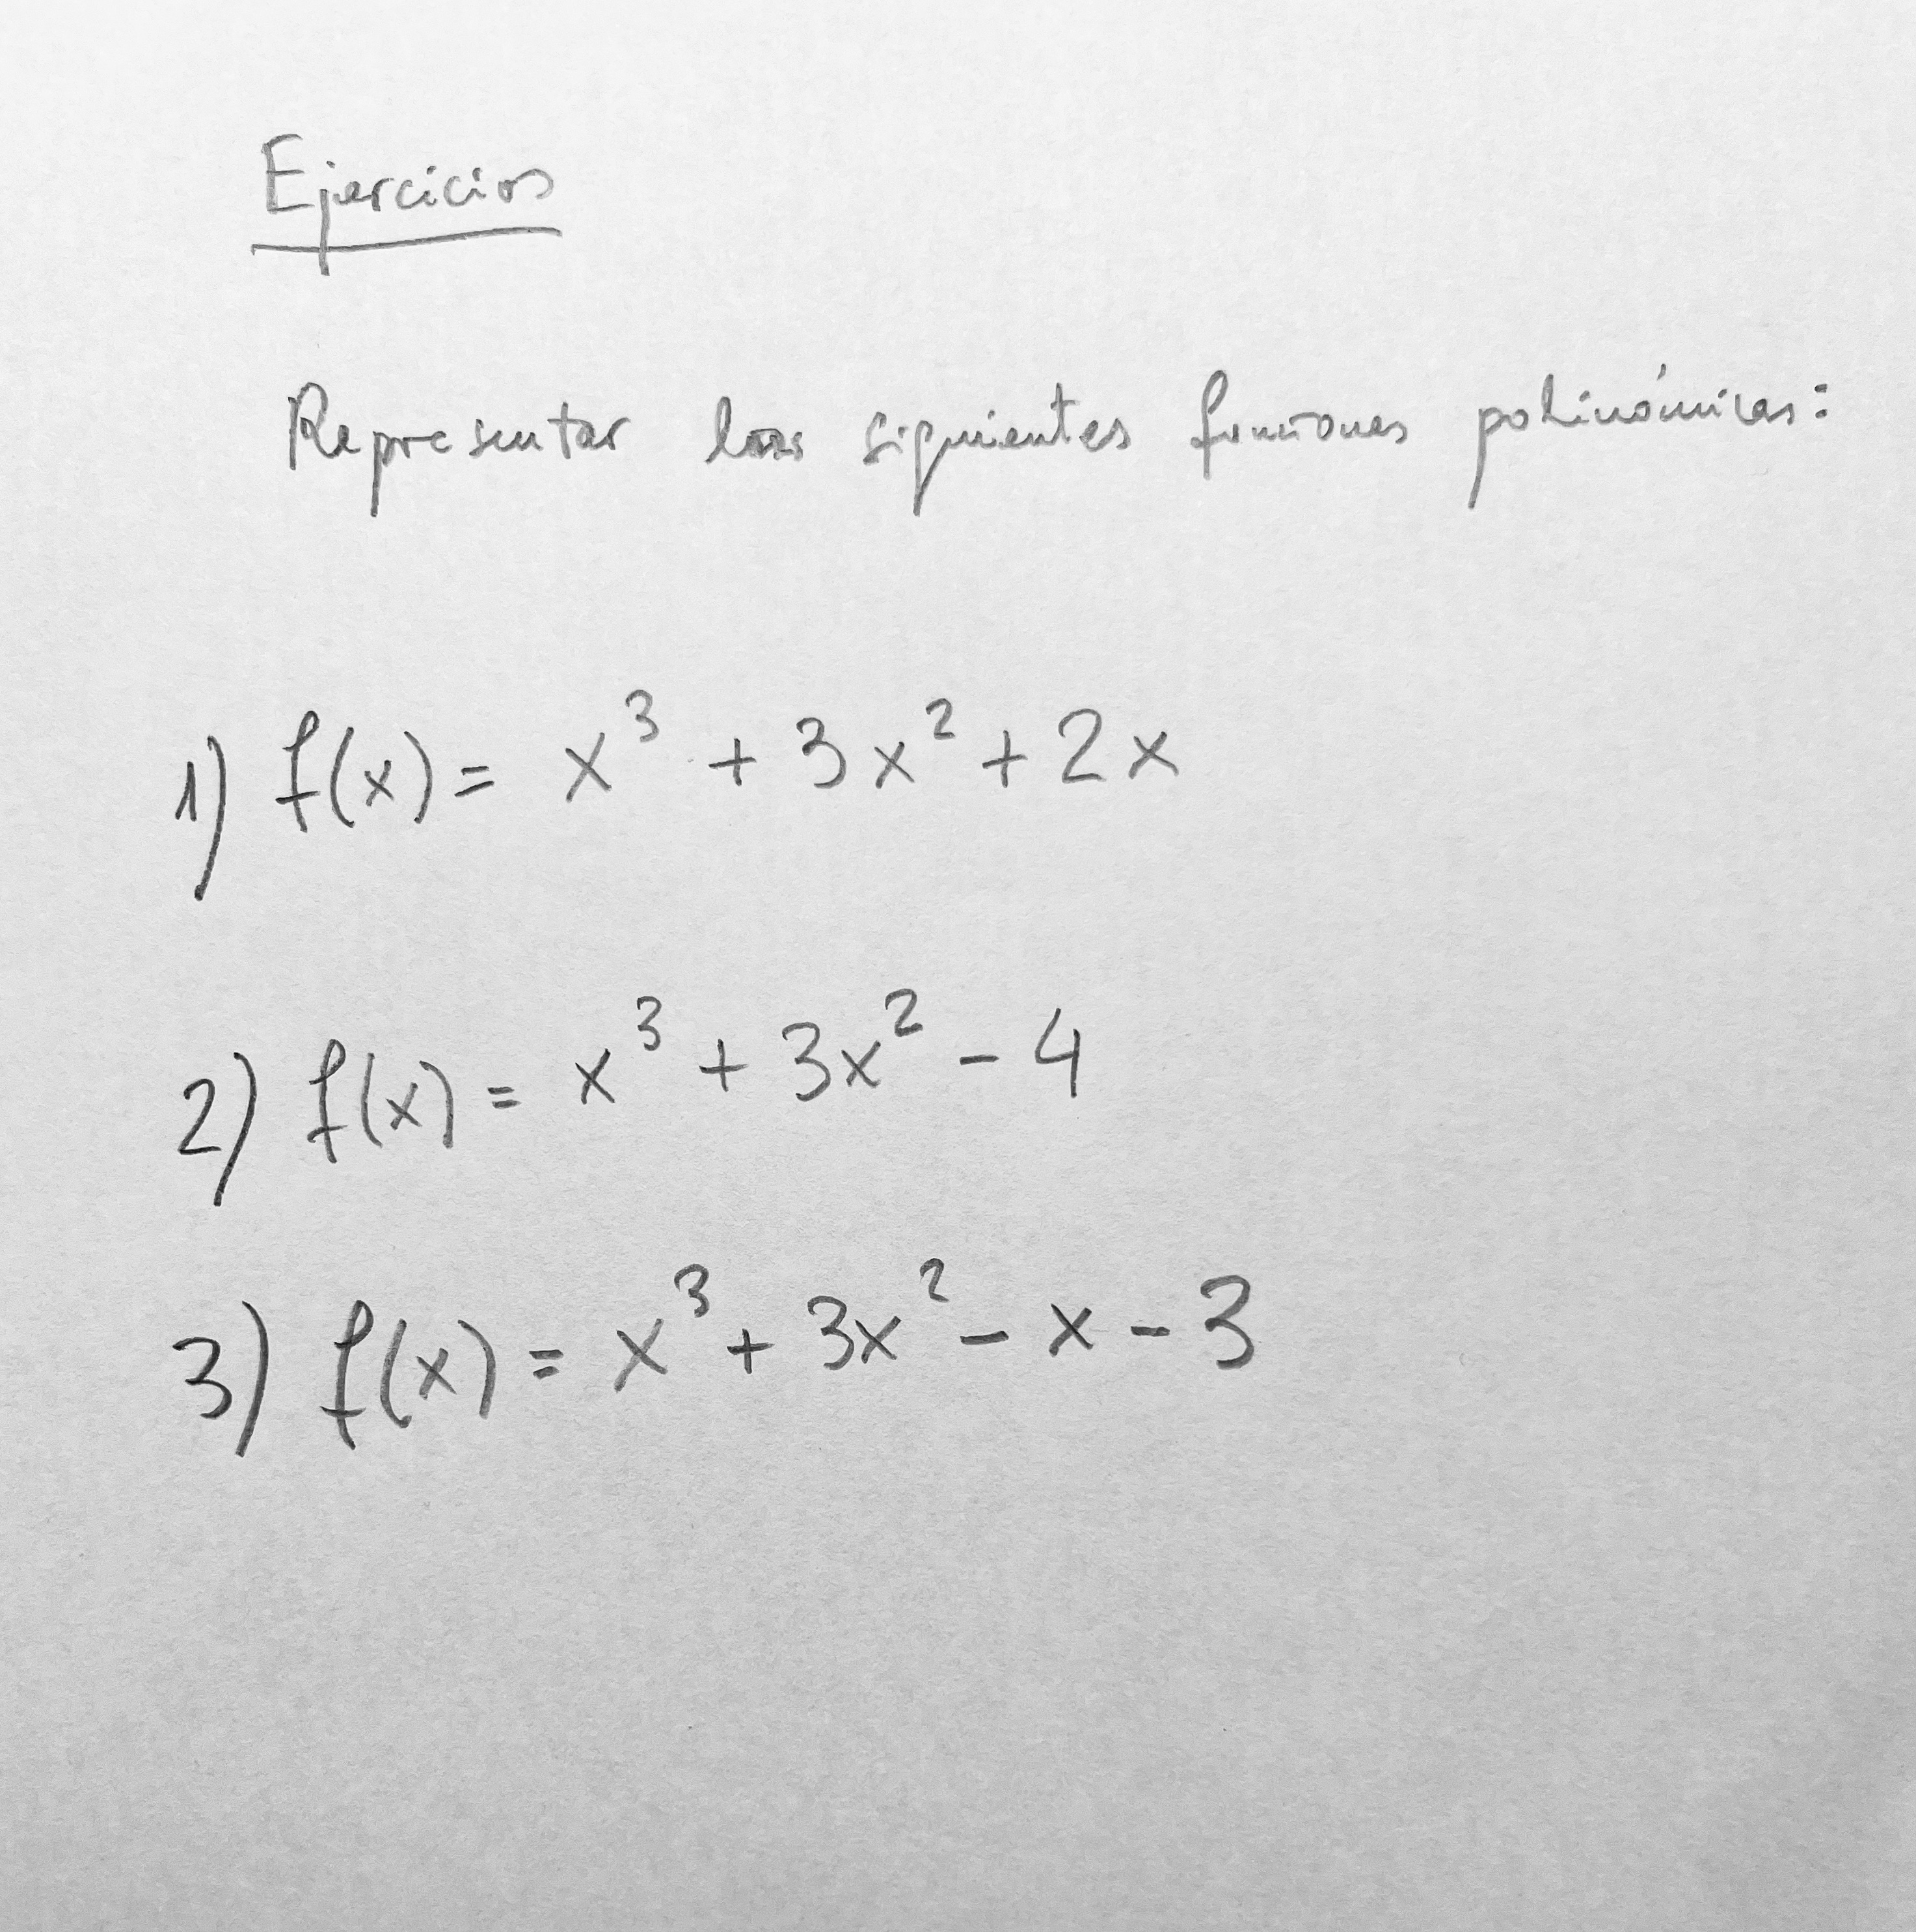 Ejercicios
Representar las siguientes funciones polinómicas:
1) f(x) = x³ + 3x² + 2x
2) f(x) = x³ + 3x² - 4
3) f(x) = x³ + 3x² - x - 3